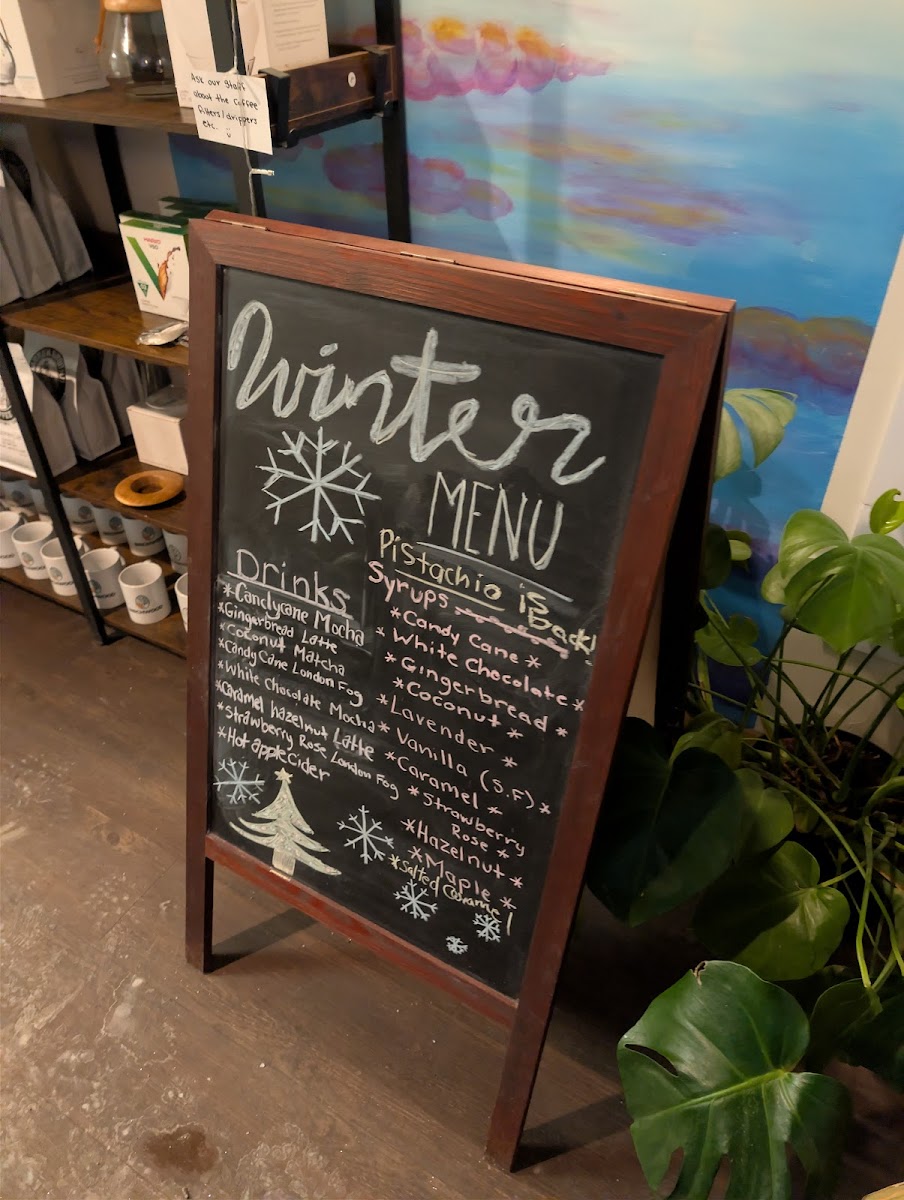 Ask our staff
about the coffee
filters/drippers
etc.
HARIO
V60
Winter
MENU
Drinks
*Candycane Mocha
*Gingerbread Latte
*Coconut Matcha
*Candy Cane London Fog
*White Chocolate Mocha
*Caramel hazelnut Latte
*Strawberry Rose London Fog
*Hot apple Cider
Pistachio is
Back!
Syrups
*Candy Cane *
* White Chocolate *
* Gingerbread *
*Coconut *
*Lavender *
* Vanilla (S.F) *
*Caramel *
*Strawberry
Rose *
*Hazelnut *
*Maple *
*Salted Caramel